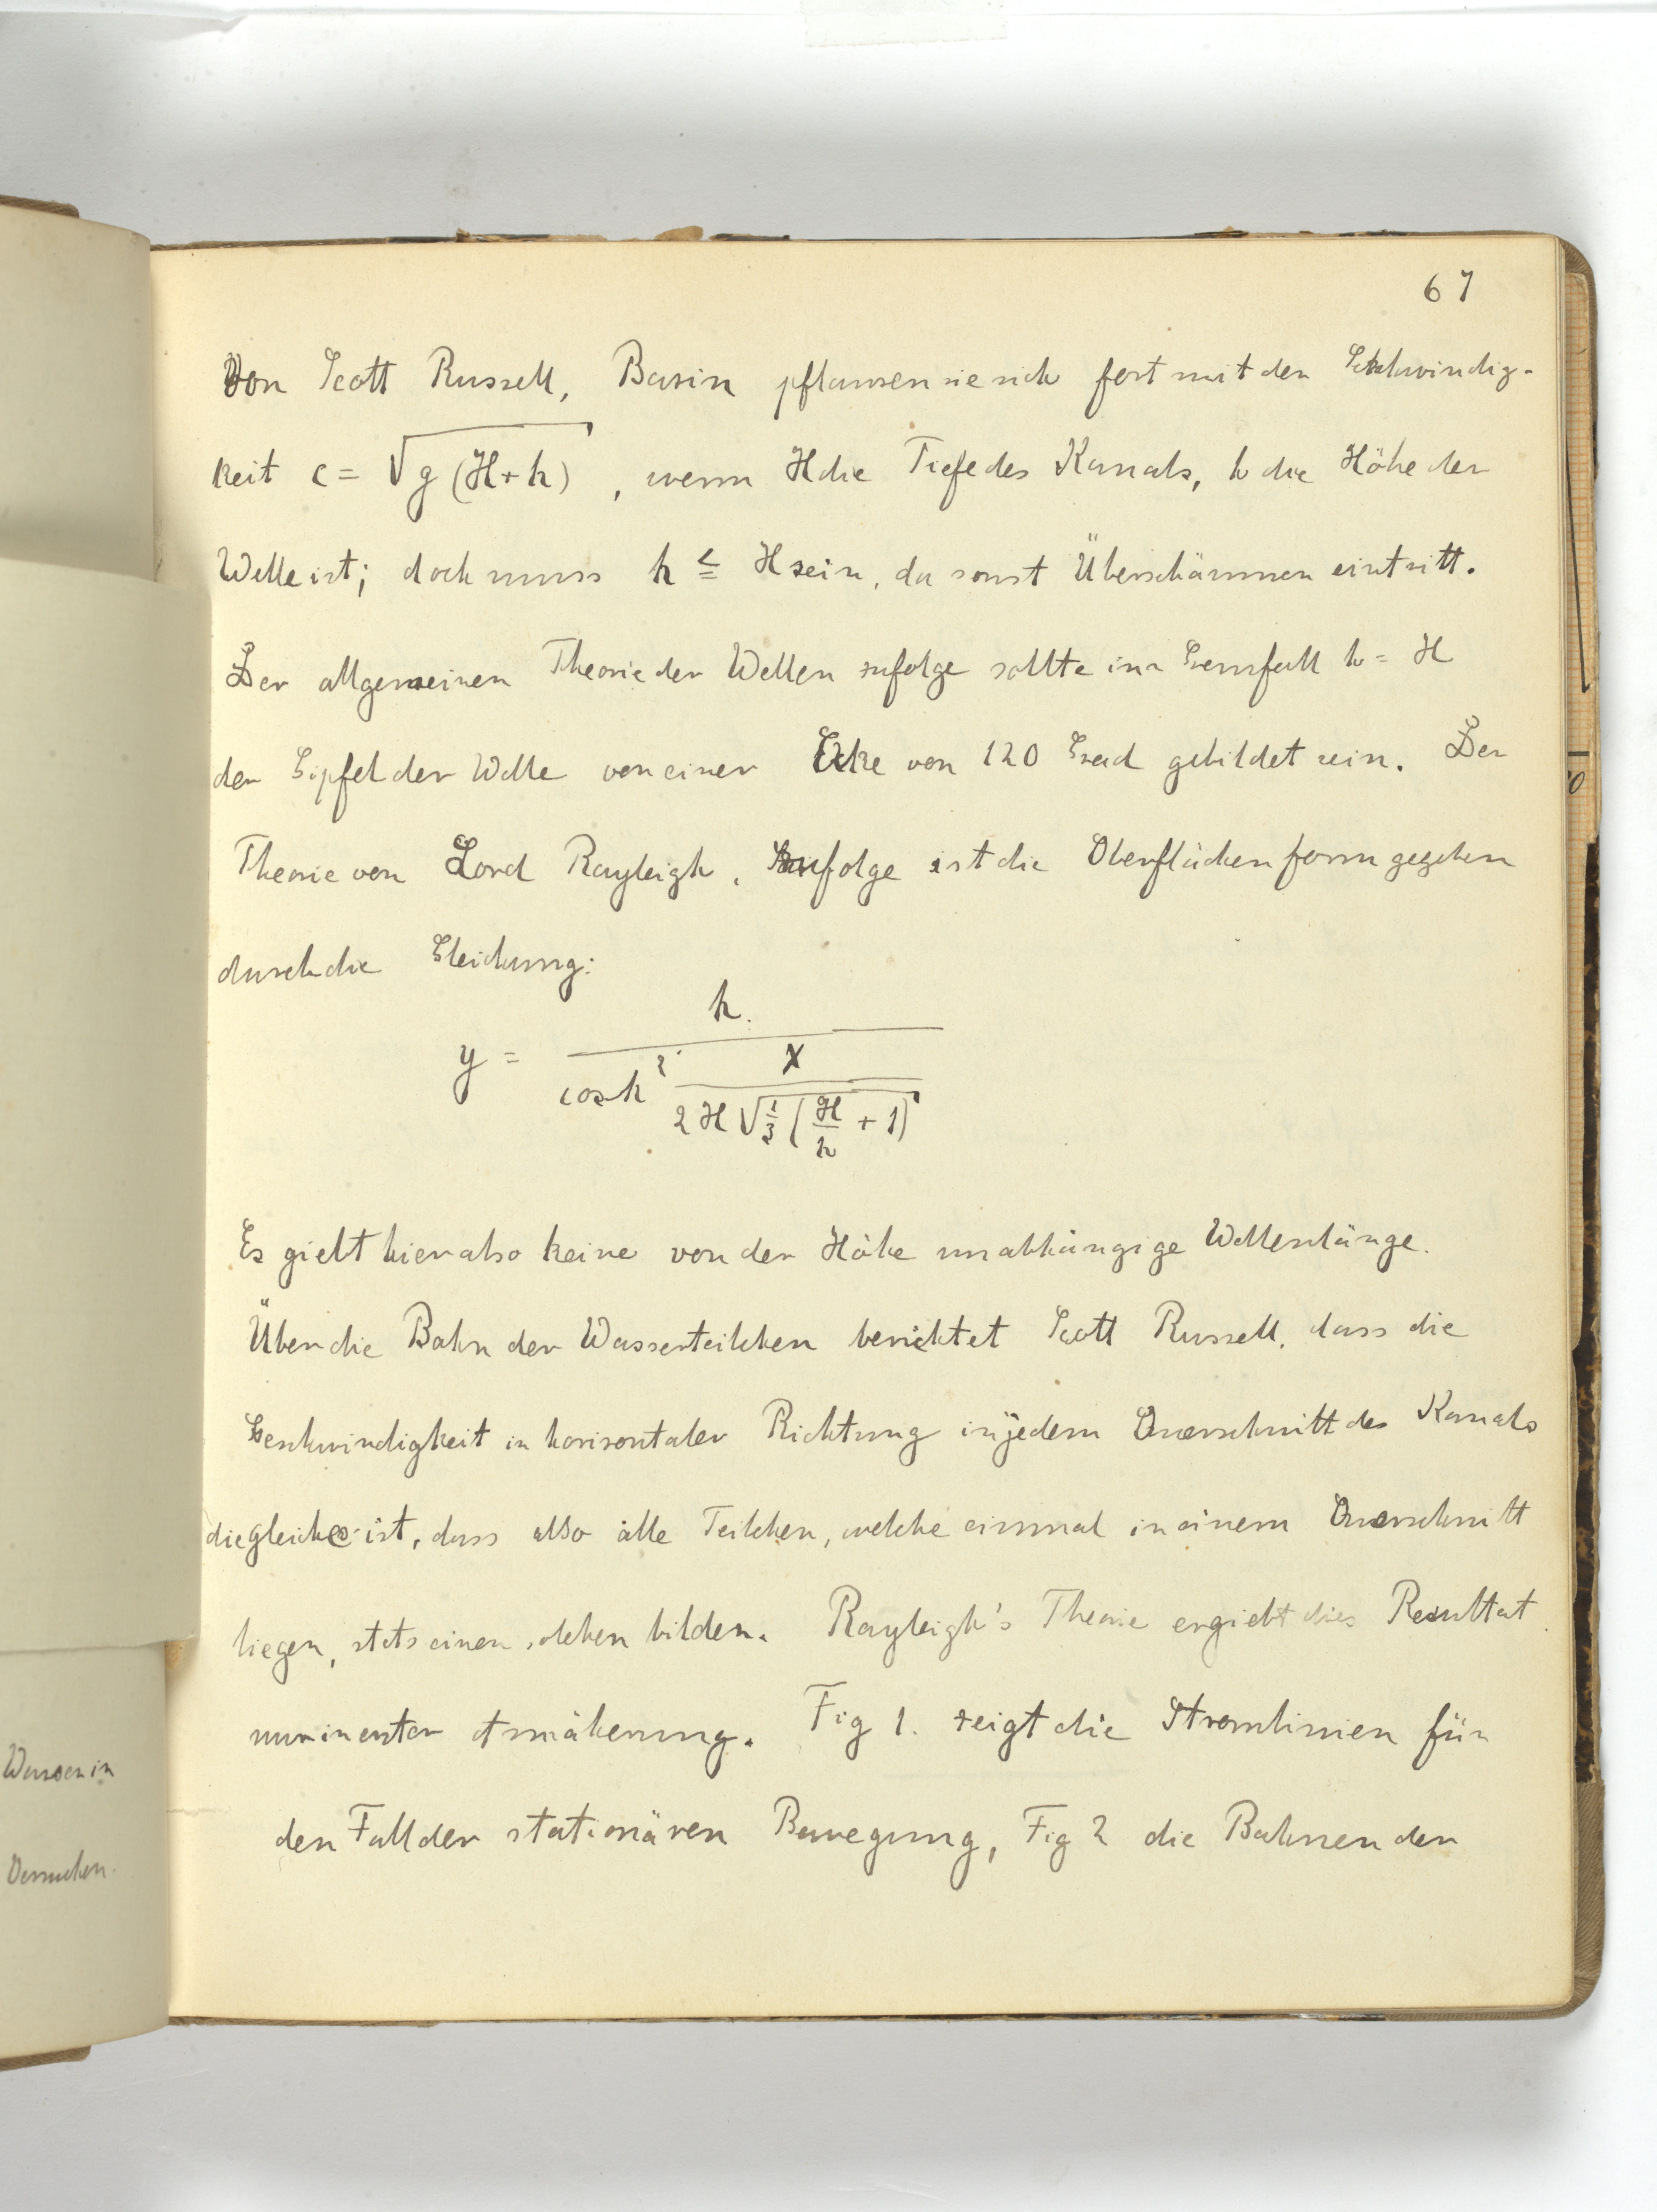 67
Von Scott Russell, Basin pflanzen sie sich fort mit der Geschwindig-
keit c = √g(H+h), wenn H die Tiefe des Kanals, h die Höhe der
Welle ist; doch muss h ≦ H sein, da sonst Überschäumen eintritt.
Der allgemeinen Theorie der Wellen zufolge sollte im Grenzfall h = H
der Gipfel der Welle von einer Ecke von 120 Grad gebildet sein. Der
Theorie von Lord Rayleigh, zufolge ist die Oberflächenform gegeben
durch die Gleichung:
y = h / cosh² x / 2H √1/3 (H/h + 1)
Es giebt hier also keine von der Höhe unabhängige Wellenlänge.
Über die Bahn der Wasserteilchen berichtet Scott Russell, dass die
Geschwindigkeit in horizontaler Richtung in jedem Querschnitt des Kanals
die gleiche ist, dass also alle Teilchen, welche einmal in einem Querschnitt
liegen, stets einen solchen bilden. Rayleigh's Theorie ergiebt dies Resultat
nur in erster Annäherung. Fig 1. zeigt die Stromlinien für
den Fall der stationären Bewegung, Fig 2 die Bahnen der
Wasser in
Versuchen.